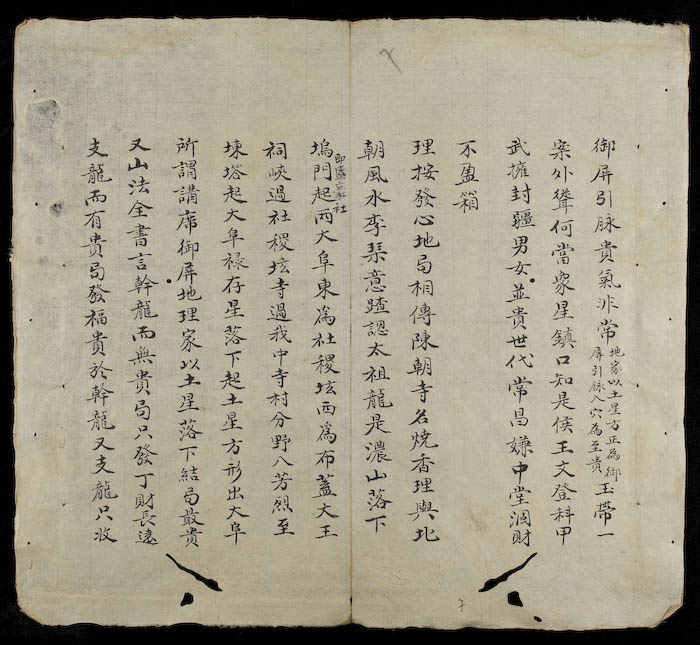 御屏引脉貴氣非常地家以土星方正為御屏引脉入穴為至貴玉帶一
案外聳何當衆星鎮口知是侯王文登科甲
武擁封疆男女並貴世代常昌嫌中堂涸財
不盈箱
理按發心地局相傳陳朝寺名燒香理與北
朝風水李琹意蹅認太祖龍是濃山落下
塢門起兩大阜東爲社稷坛西爲布蓋大王
祠峽過社稷坛寺過我中寺村分野八芳烈至
埬塔起大阜禄存星落下起土星方形出大阜
所謂講席御屏地理家以土星落下結局最貴
又山法全書言幹龍而無貴局只發丁財長遠
支龍而有貴局發福貴於幹龍又支龍只收